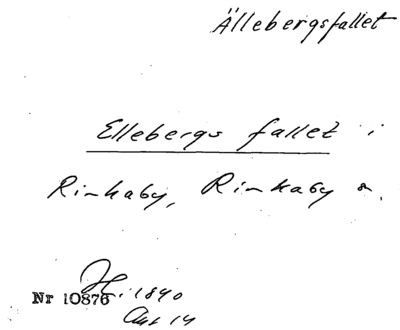 Ällebergsfallet
Ellebergs fallet i
Rinkaby, Rinkaby s.
Nr 10876 1840
14